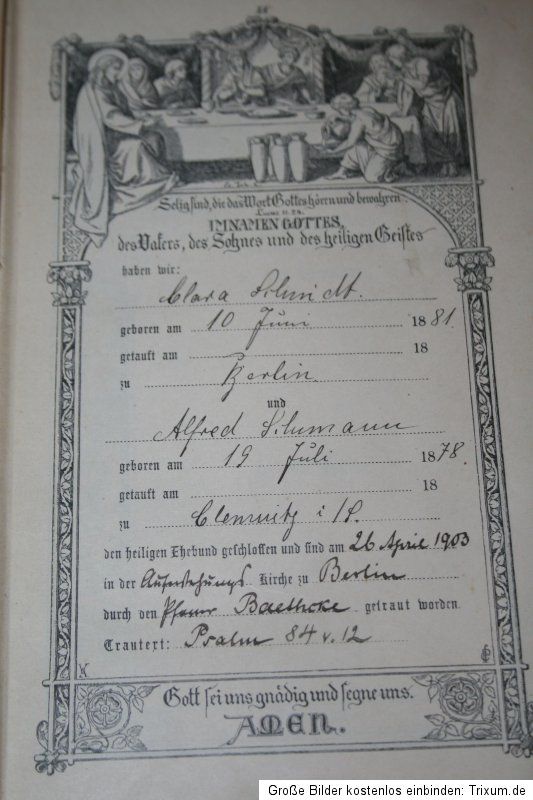 Selig sind, die das Wort Gottes hören und bewahren.
Lucas 11.28.
IM NAMEN GOTTES,
des Vaters, des Sohnes und des heiligen Geistes
haben wir:
Clara Schmidt.
geboren am 10 Juni 1881
getauft am 18
zu Berlin
und
Alfred Schumann
geboren am 19 Juli 1878
getauft am 18
zu Chemnitz i/S.
den heiligen Ehebund geschlossen und sind am 26 April 1903
in der Auferstehungs Kirche zu Berlin
durch den Pfarrer Baethcke getraut worden.
Trautext: Psalm 84 v. 12
Gott sei uns gnädig und segne uns.
AMEN.
Große Bilder kostenlos einbinden: Trixum.de